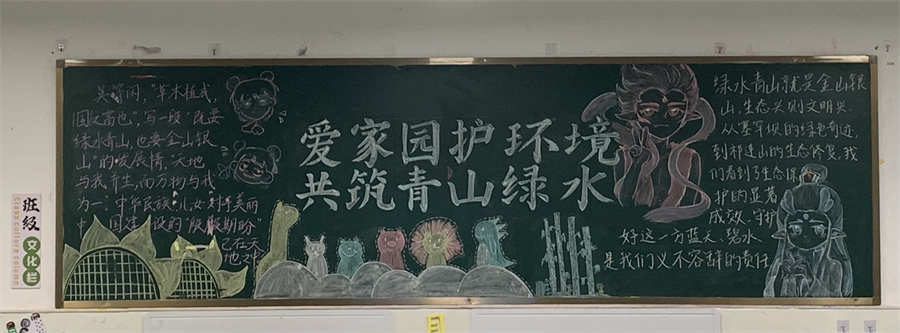 班级
文化栏
Class culture column
草木植成,
国之富也",写一级"既要
绿水青山,也要金山银
山"的发展情."天地
与我并生,而万物与我
为一".中华民族儿女对于美丽
中国建设的"殷殷期盼"
已在天
地之中
爱家园护环境
共筑青山绿水
绿水青山就是金山银
山,生态兴则文明兴
从塞罕坝的绿色奇迹,
到祁连山的生态修复,我
们看到了生态保
护的显著
成效、守护
好这一方蓝天、碧水
是我们义不容辞的责任